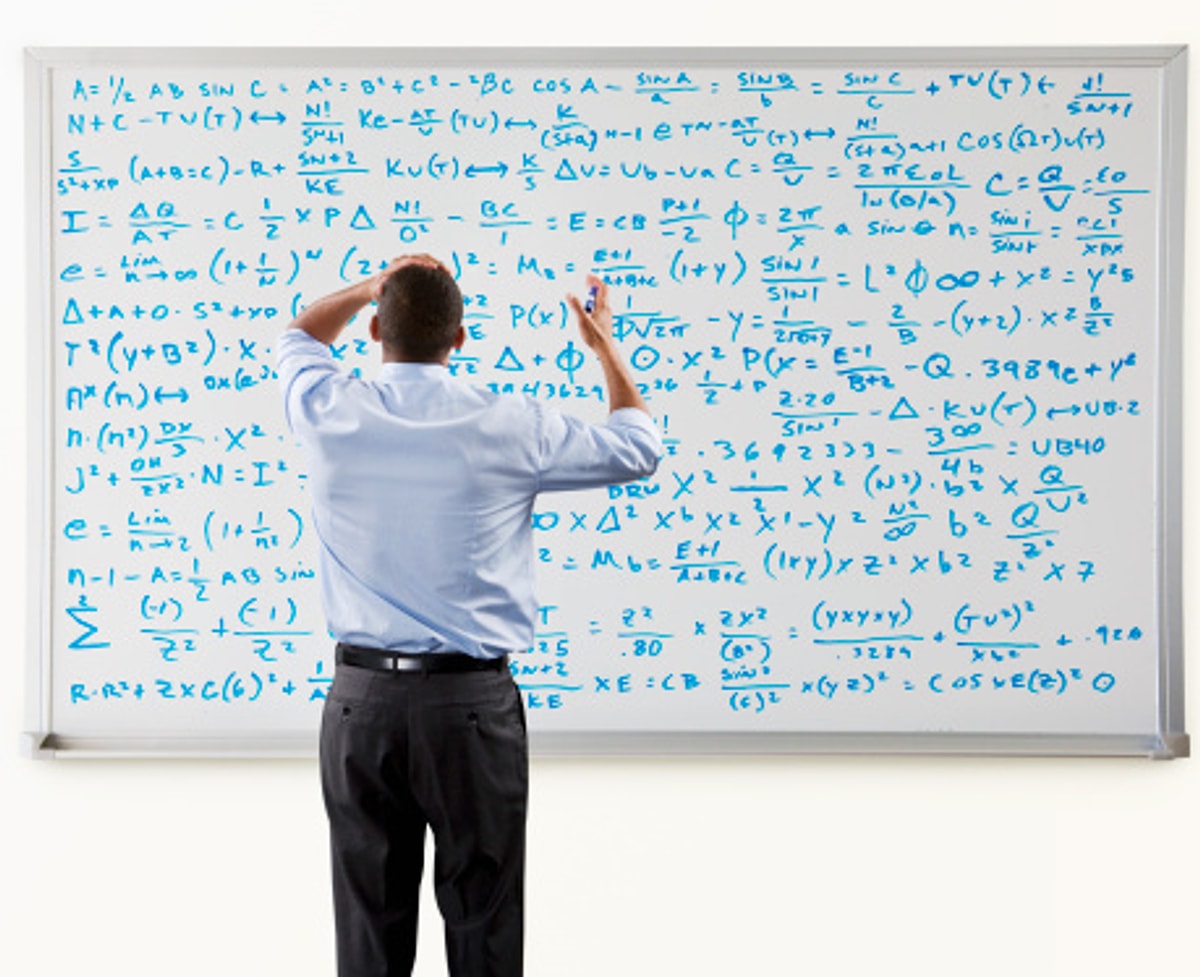 A = 1/2 AB SIN C = A² = B² + C² - 2BC COS A - SIN A/a = SIN B/b = SIN C/c + TU(T) ← N!/SN+1
N + C - TU(T) ↔ N!/SN+1 Ke - AT/U (TU) ↔ K/(S+a) N-1 e TN - AT/U (T) ↔ N!/(S+a) n+1 COS(ΩT)u(T)
S/S²+XP (A+B=C) - R + SN+2/KE KU(T) ↔ K/S ΔU = Ub - Ua C = Q/V = 2πE0L/ln(b/a) C = Q/V = E0/S
I = ΔQ/AT = C 1/2 X P Δ N!/0² - BC/1 = E = CB P+1/-2 ϕ = 2π/X a SIN Θ n = SIN i/SIN t =
e = LIM n→∞ (1+1/N)ᴺ (2+ )² = M₂ = E+1/A+B+C (1+y) SIN 1/SIN 1 = L² ϕ ∞ + X² = Y²5
Δ+A+0· S²+XP ( P(X) 1/ϕ√2π - Y = - 2/B - (Y+2)· X² B/Z²
T²(Y+B²)· X· X2 X² Δ + ϕ 0· X² P(X = E-1/B+2 - Q .3989e + Yᵉ
Aˣ(n) ↔ 3943629 236 1/2 + P 2·20/SIN¹ - Δ · KU(T) ↔ UB·2
n·(n²) DX/3 · X² · .3692333 - 300/4b = UB40
J² + DH/2X² · N = I² - X² 1/2 X² (N²)· b² X Q/U²
e = LIM n→2 (1+1/n²) X Δ² Xᵇ X² X¹ - Y² N²/∞ b² Q/Z²
n - 1 - A = 1/2 AB SIN ² = Mb = E+1/A+B+C (1XY) X Z² X b² Z² X 7
Σ² (-1)/Z² + (-1)/Z² T/25 = Z²/.80 X ZX²/(B²) = (YXYXY)/.3289 + (TU²)²/Xb² + .928
R·R² + 2XC(6)² + SN+2/KE X E = CB SIN²/(6)² X (YZ)² = COS X E(Z)² 0